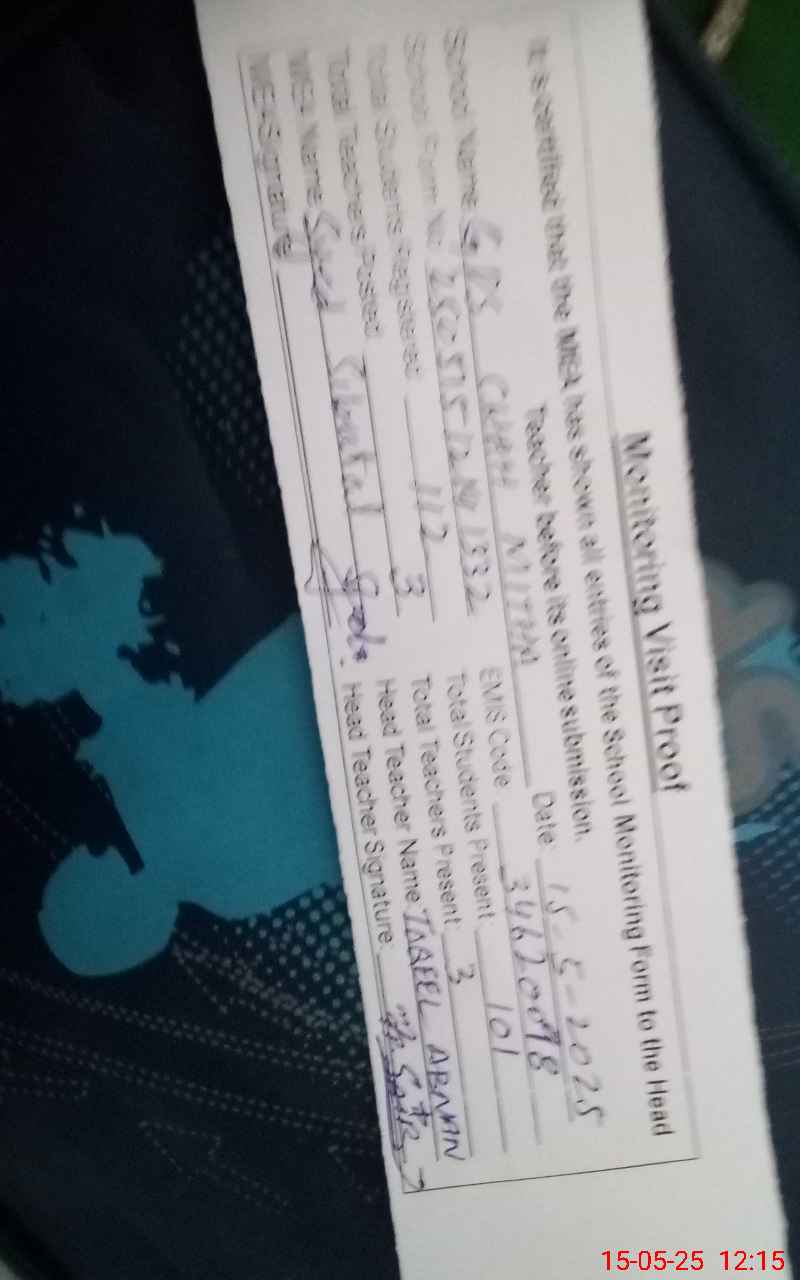 Monitoring Visit Proof
It is certified that the MEA has shown all entries of the School Monitoring Form to the Head
Teacher before its online submission.
Date: 15-5-2025
School Name: GPS CHAH MITHA EMIS Code
School Form No: Total Students Present: 101
Total Students Registered: 112 Total Teachers Present: 3
Total Teachers Posted: 3 Head Teacher Name:
MEA Name: Syed Head Teacher Signature:
MEA Signature:
15-05-25 12:15